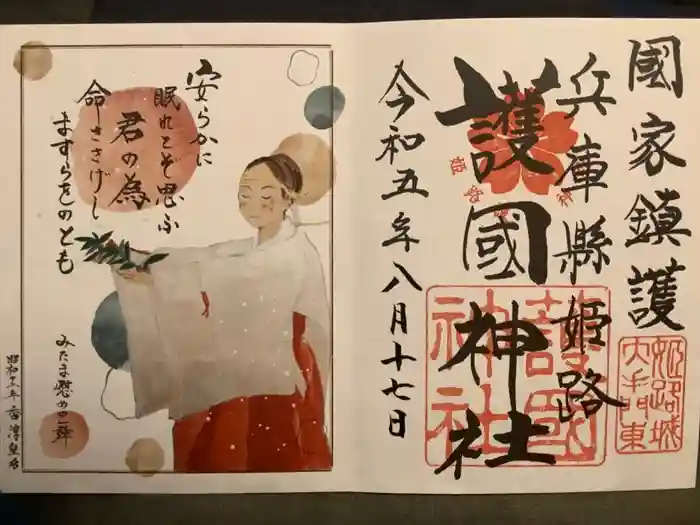 國家鎮護
兵庫縣姫路
護國神社
令和五年八月十七日
護國
神社
姫路城
大手門東
安らかに
眠れとぞ思ふ
君の為
命ささげし
ますらをのとも
みたま慰めの舞